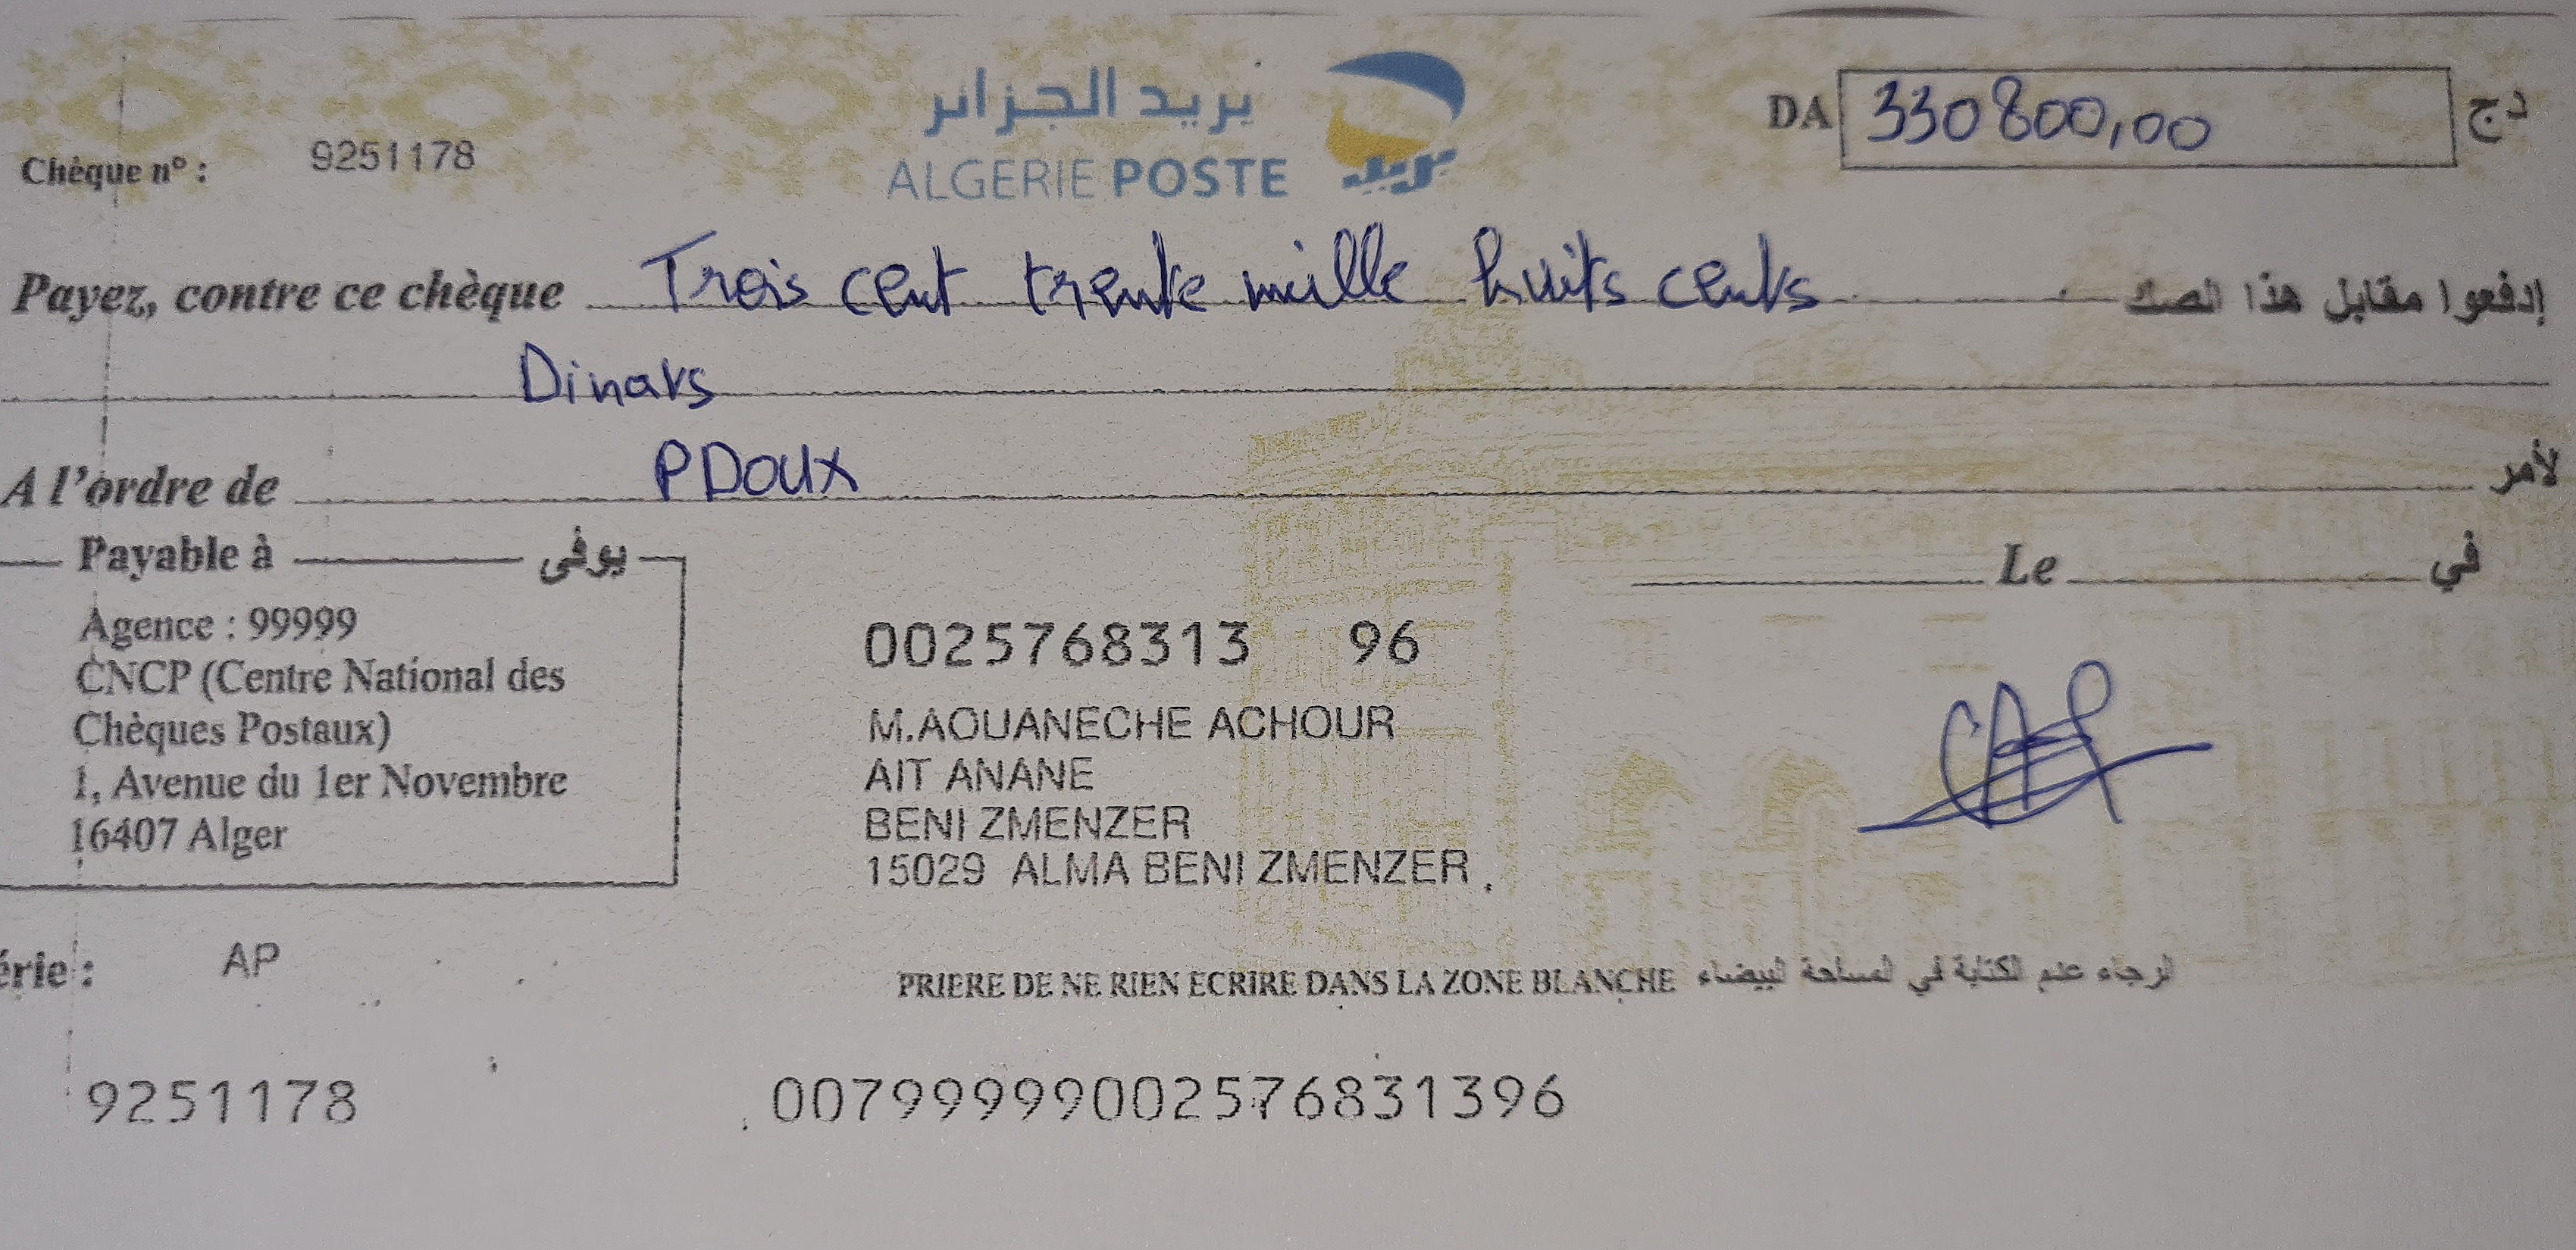 بريد الجزائر
ALGERIE POSTE
بريد
DA 330800,00 دج
Chèque n° : 9251178
Payez, contre ce chèque Trois cent trente mille huits cents إدفعوا مقابل هذا الصك
Dinars
A l'ordre de PDoux لأمر
Payable à يوفى
Le في
Agence : 99999
CNCP (Centre National des
Chèques Postaux)
1, Avenue du 1er Novembre
16407 Alger
0025768313 96
M.AOUANECHE ACHOUR
AIT ANANE
BENI ZMENZER
15029 ALMA BENI ZMENZER
érie : AP
PRIERE DE NE RIEN ECRIRE DANS LA ZONE BLANCHE الرجاء عدم الكتابة في المساحة البيضاء
9251178 00799999002576831396